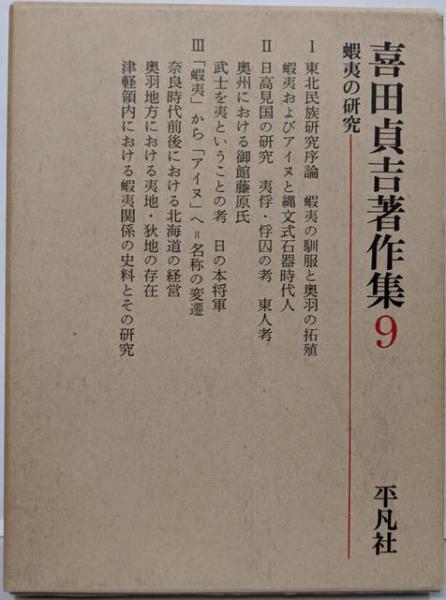 喜田貞吉著作集9
蝦夷の研究
平凡社
Ⅰ 東北民族研究序論 蝦夷の馴服と奥羽の拓殖
蝦夷およびアイヌと縄文式石器時代人
Ⅱ 日高見国の研究 夷俘・俘囚の考 東人考
奥州における御館藤原氏
武士を夷ということの考 日の本将軍
Ⅲ 「蝦夷」から「アイヌ」へ=名称の変遷
奈良時代前後における北海道の経営
奥羽地方における夷地・狄地の存在
津軽領内における蝦夷関係の史料とその研究